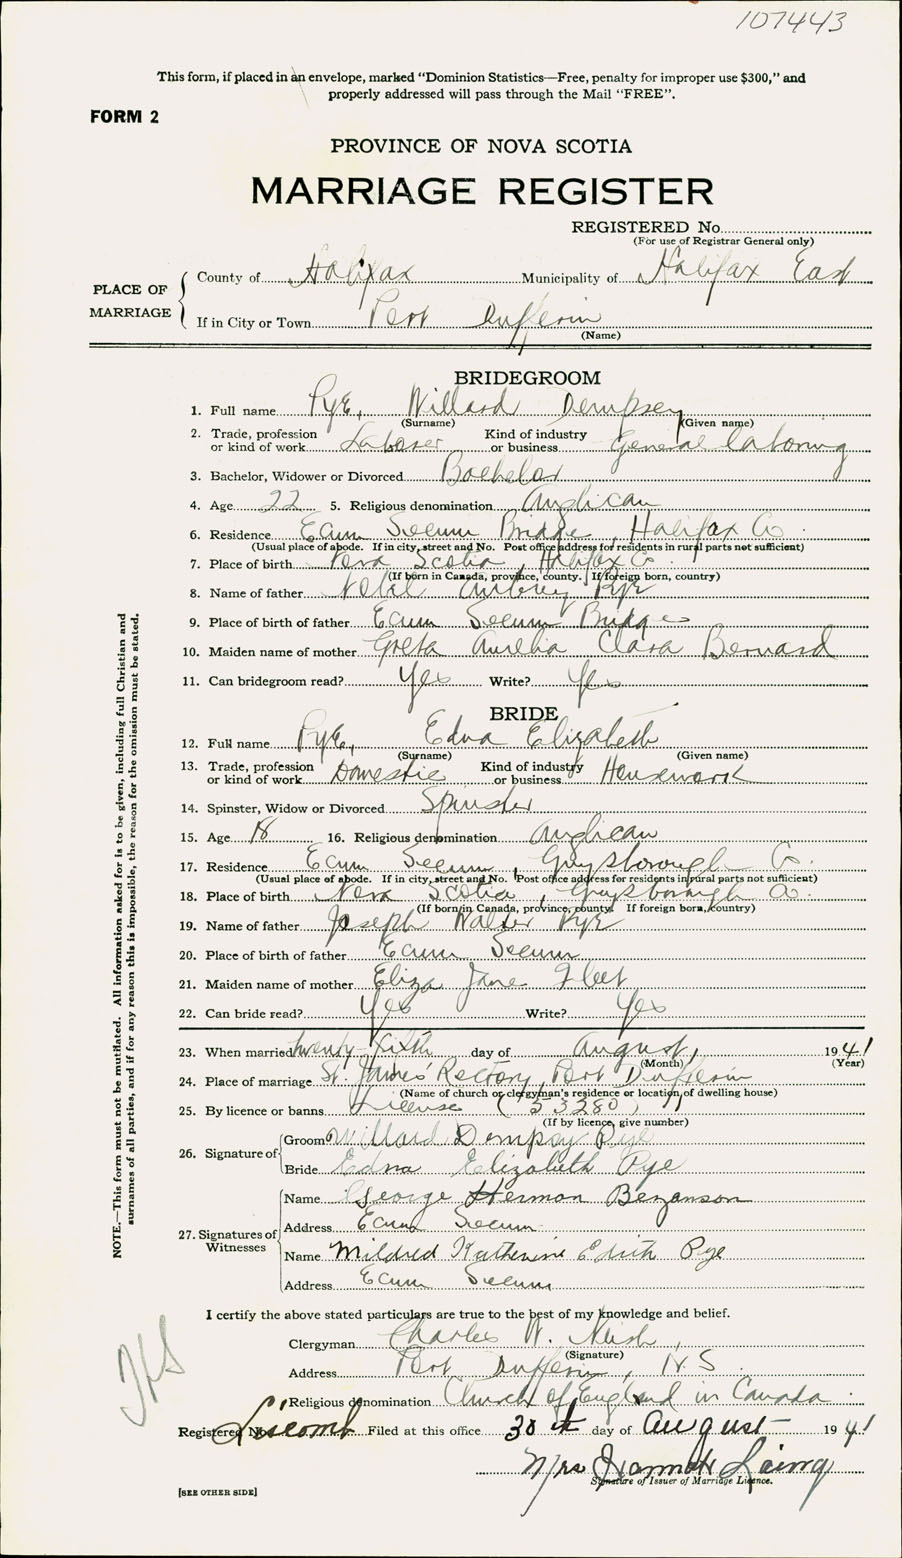 107443
This form, if placed in an envelope, marked "Dominion Statistics—Free, penalty for improper use $300," and
properly addressed will pass through the Mail "FREE".
FORM 2
PROVINCE OF NOVA SCOTIA
MARRIAGE REGISTER
REGISTERED No.
(For use of Registrar General only)
PLACE OF MARRIAGE
County of Halifax Municipality of Halifax East
If in City or Town Port Dufferin
(Name)
BRIDEGROOM
1. Full name Pye, Willard Dempsey
(Surname) (Given name)
2. Trade, profession or kind of work Laborer Kind of industry or business General laboring
3. Bachelor, Widower or Divorced Bachelor
4. Age 22 5. Religious denomination Anglican
6. Residence Ecum Secum Bridge, Halifax Co.
(Usual place of abode. If in city, street and No. Post office address for residents in rural parts not sufficient)
7. Place of birth Nova Scotia, Halifax Co.
(If born in Canada, province, county. If foreign born, country)
8. Name of father Aubrey Pye
9. Place of birth of father Ecum Secum Bridge
10. Maiden name of mother Greta Aurelia Clara Bernard
11. Can bridegroom read? Yes Write? Yes
BRIDE
12. Full name Pye, Edna Elizabeth
(Surname) (Given name)
13. Trade, profession or kind of work Domestic Kind of industry or business Housework
14. Spinster, Widow or Divorced Spinster
15. Age 18 16. Religious denomination Anglican
17. Residence Ecum Secum, Guysborough Co.
(Usual place of abode. If in city, street and No. Post office address for residents in rural parts not sufficient)
18. Place of birth Nova Scotia, Guysborough Co.
(If born in Canada, province, county. If foreign born, country)
19. Name of father Joseph Walter Pye
20. Place of birth of father Ecum Secum
21. Maiden name of mother Eliza Jane Fleet
22. Can bride read? Yes Write? Yes
23. When married twenty-fifth day of August, 1941
(Month) (Year)
24. Place of marriage St. James' Rectory, Port Dufferin
(Name of church or clergyman's residence or location of dwelling house)
25. By licence or banns License (53280)
(If by licence, give number)
26. Signature of
Groom Willard Dempsy Pye
Bride Edna Elizabeth Pye
27. Signatures of Witnesses
Name George Hermon Bezanson
Address Ecum Secum
Name Mildred Katherine Edith Pye
Address Ecum Secum
I certify the above stated particulars are true to the best of my knowledge and belief.
Clergyman Charles W.
(Signature)
Address Port Dufferin, N.S.
Religious denomination Church of England in Canada
Registered No. Liscomb Filed at this office 30th day of August 1941
Mrs Hannah Laing
Signature of Issuer of Marriage Licence.
[SEE OTHER SIDE]
NOTE.—This form must not be mutilated. All information asked for is to be given, including full Christian and
surnames of all parties, and if for any reason this is impossible, the reason for the omission must be stated.